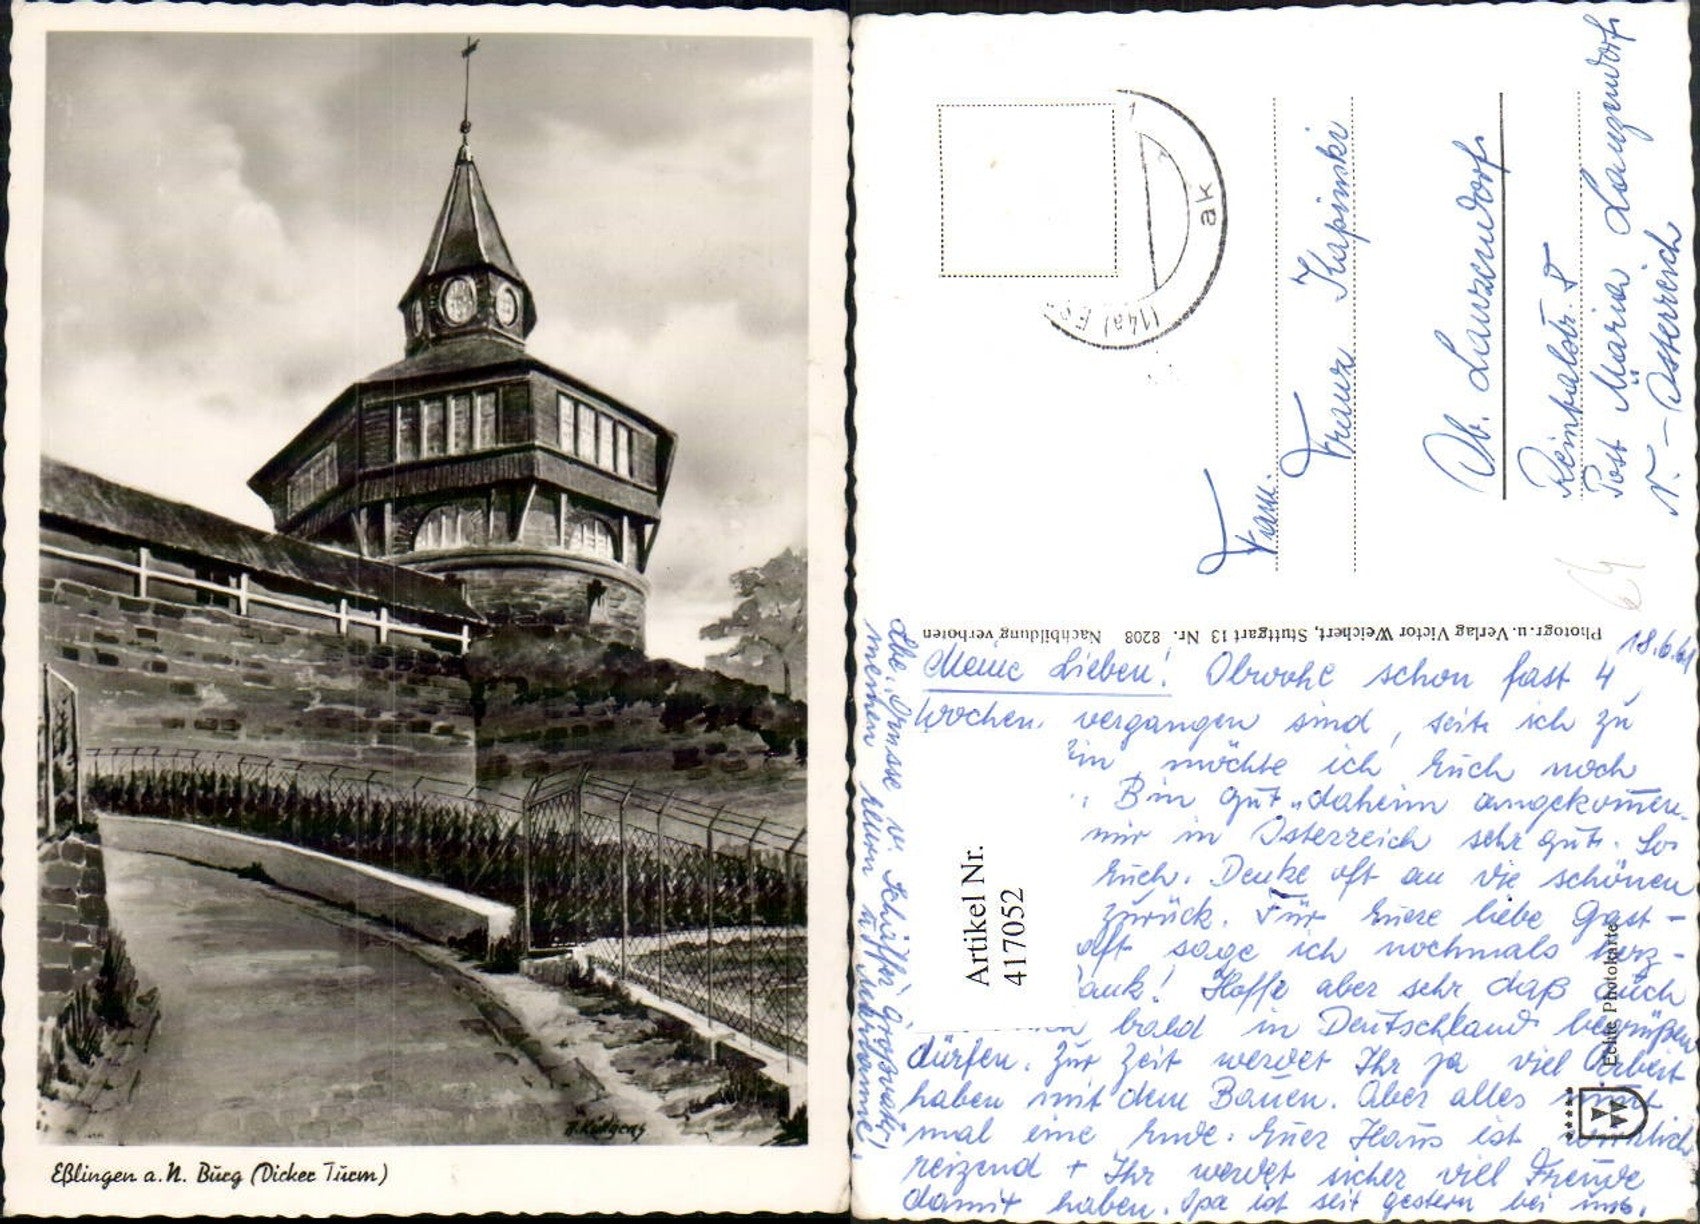 Eßlingen a. N. Burg (Dicker Turm)
(14a) Es
ak
Fam.
Franz Kapinski
Ob. Lanzendorf
Reinbalstr. 8
Post Maria Lanzendorf
N.-Österreich
Photogr. u. Verlag Victor Weichert, Stuttgart 13 Nr. 8208 Nachbildung verboten
18.6.61
Meine Lieben! Obwohl schon fast 4
Wochen vergangen sind, seit ich zu
bin, möchte ich Euch noch
Bin gut daheim angekommen.
mir in Österreich sehr gut. So
Euch. Denke oft an die schönen
zurück. Für Euere liebe Gast-
aft sage ich nochmals herz-
ank! Hoffe aber sehr daß Euch
bald in Deutschland begrüßen
dürfen. Zur Zeit werdet Ihr ja viel Arbeit
haben mit dem Bauen. Aber alles nimmt
mal eine Ende. Euer Haus ist wirklich
reizend + Ihr werdet sicher viel Freude
damit haben. Opa ist seit gestern bei uns.
Lbe. Grüsse v. Schäffer Grossvater,
meinen u. Mariannne.
Artikel Nr.
417052
Echte Photokarte